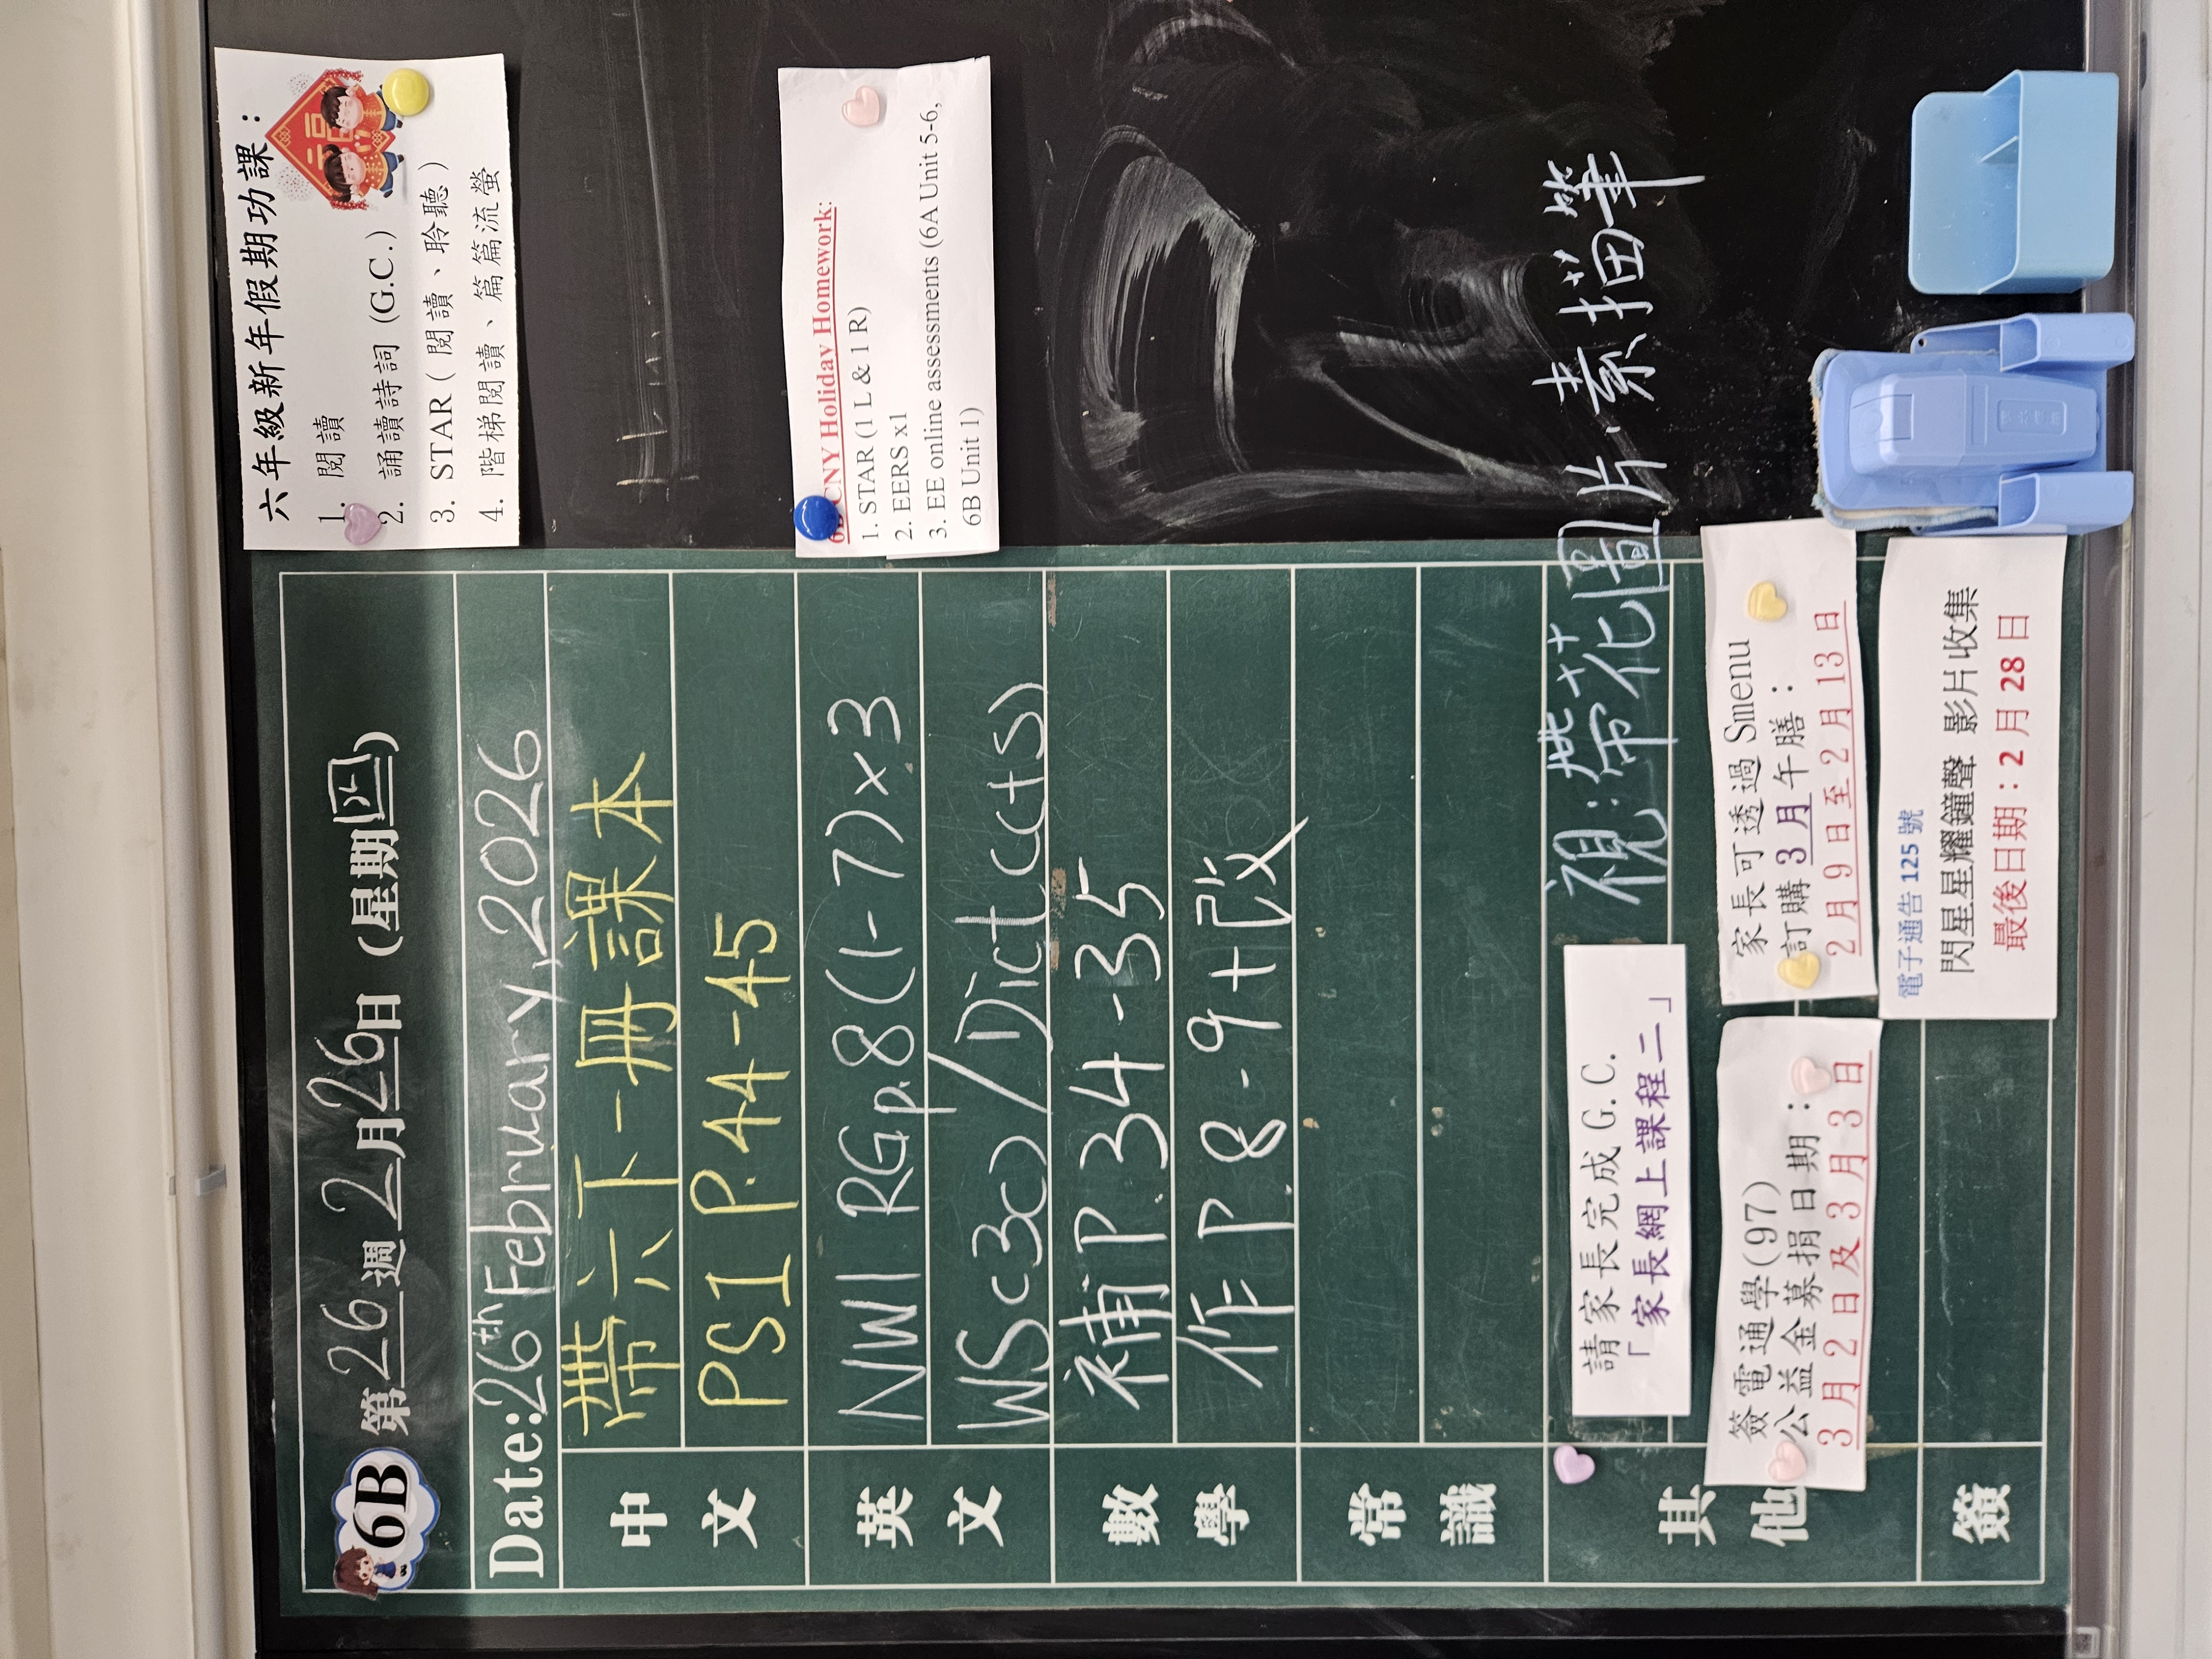 6B 第26週 2月26日 (星期四)
Date: 26th February, 2026
中文
帶六下一冊課本
PS1 P.44-45
英文
NW1 RG p.8 (1-7) x3
WS(30) / Dict(c+s)
數學
補 P.34-35
作 P.8-9+改
常識
其他
視:帶花圖片、素描筆
請家長完成 G.C.
「家長網上課程二」
簽電通學(97)
公益金募捐日期:
3月2日及3月3日
家長可透過 Smenu
訂購 3月午膳:
2月9日至2月13日
電子通告 125 號
閃星星耀鐘聲 影片收集
最後日期:2月28日
簽
六年級新年假期功課:
福
1. 閱讀
2. 誦讀詩詞 (G.C.)
3. STAR(閱讀、聆聽)
4. 階梯閱讀、篇篇流螢
CNY Holiday Homework:
1. STAR (1 L & 1 R)
2. EERS x1
3. EE online assessments (6A Unit 5-6,
6B Unit 1)